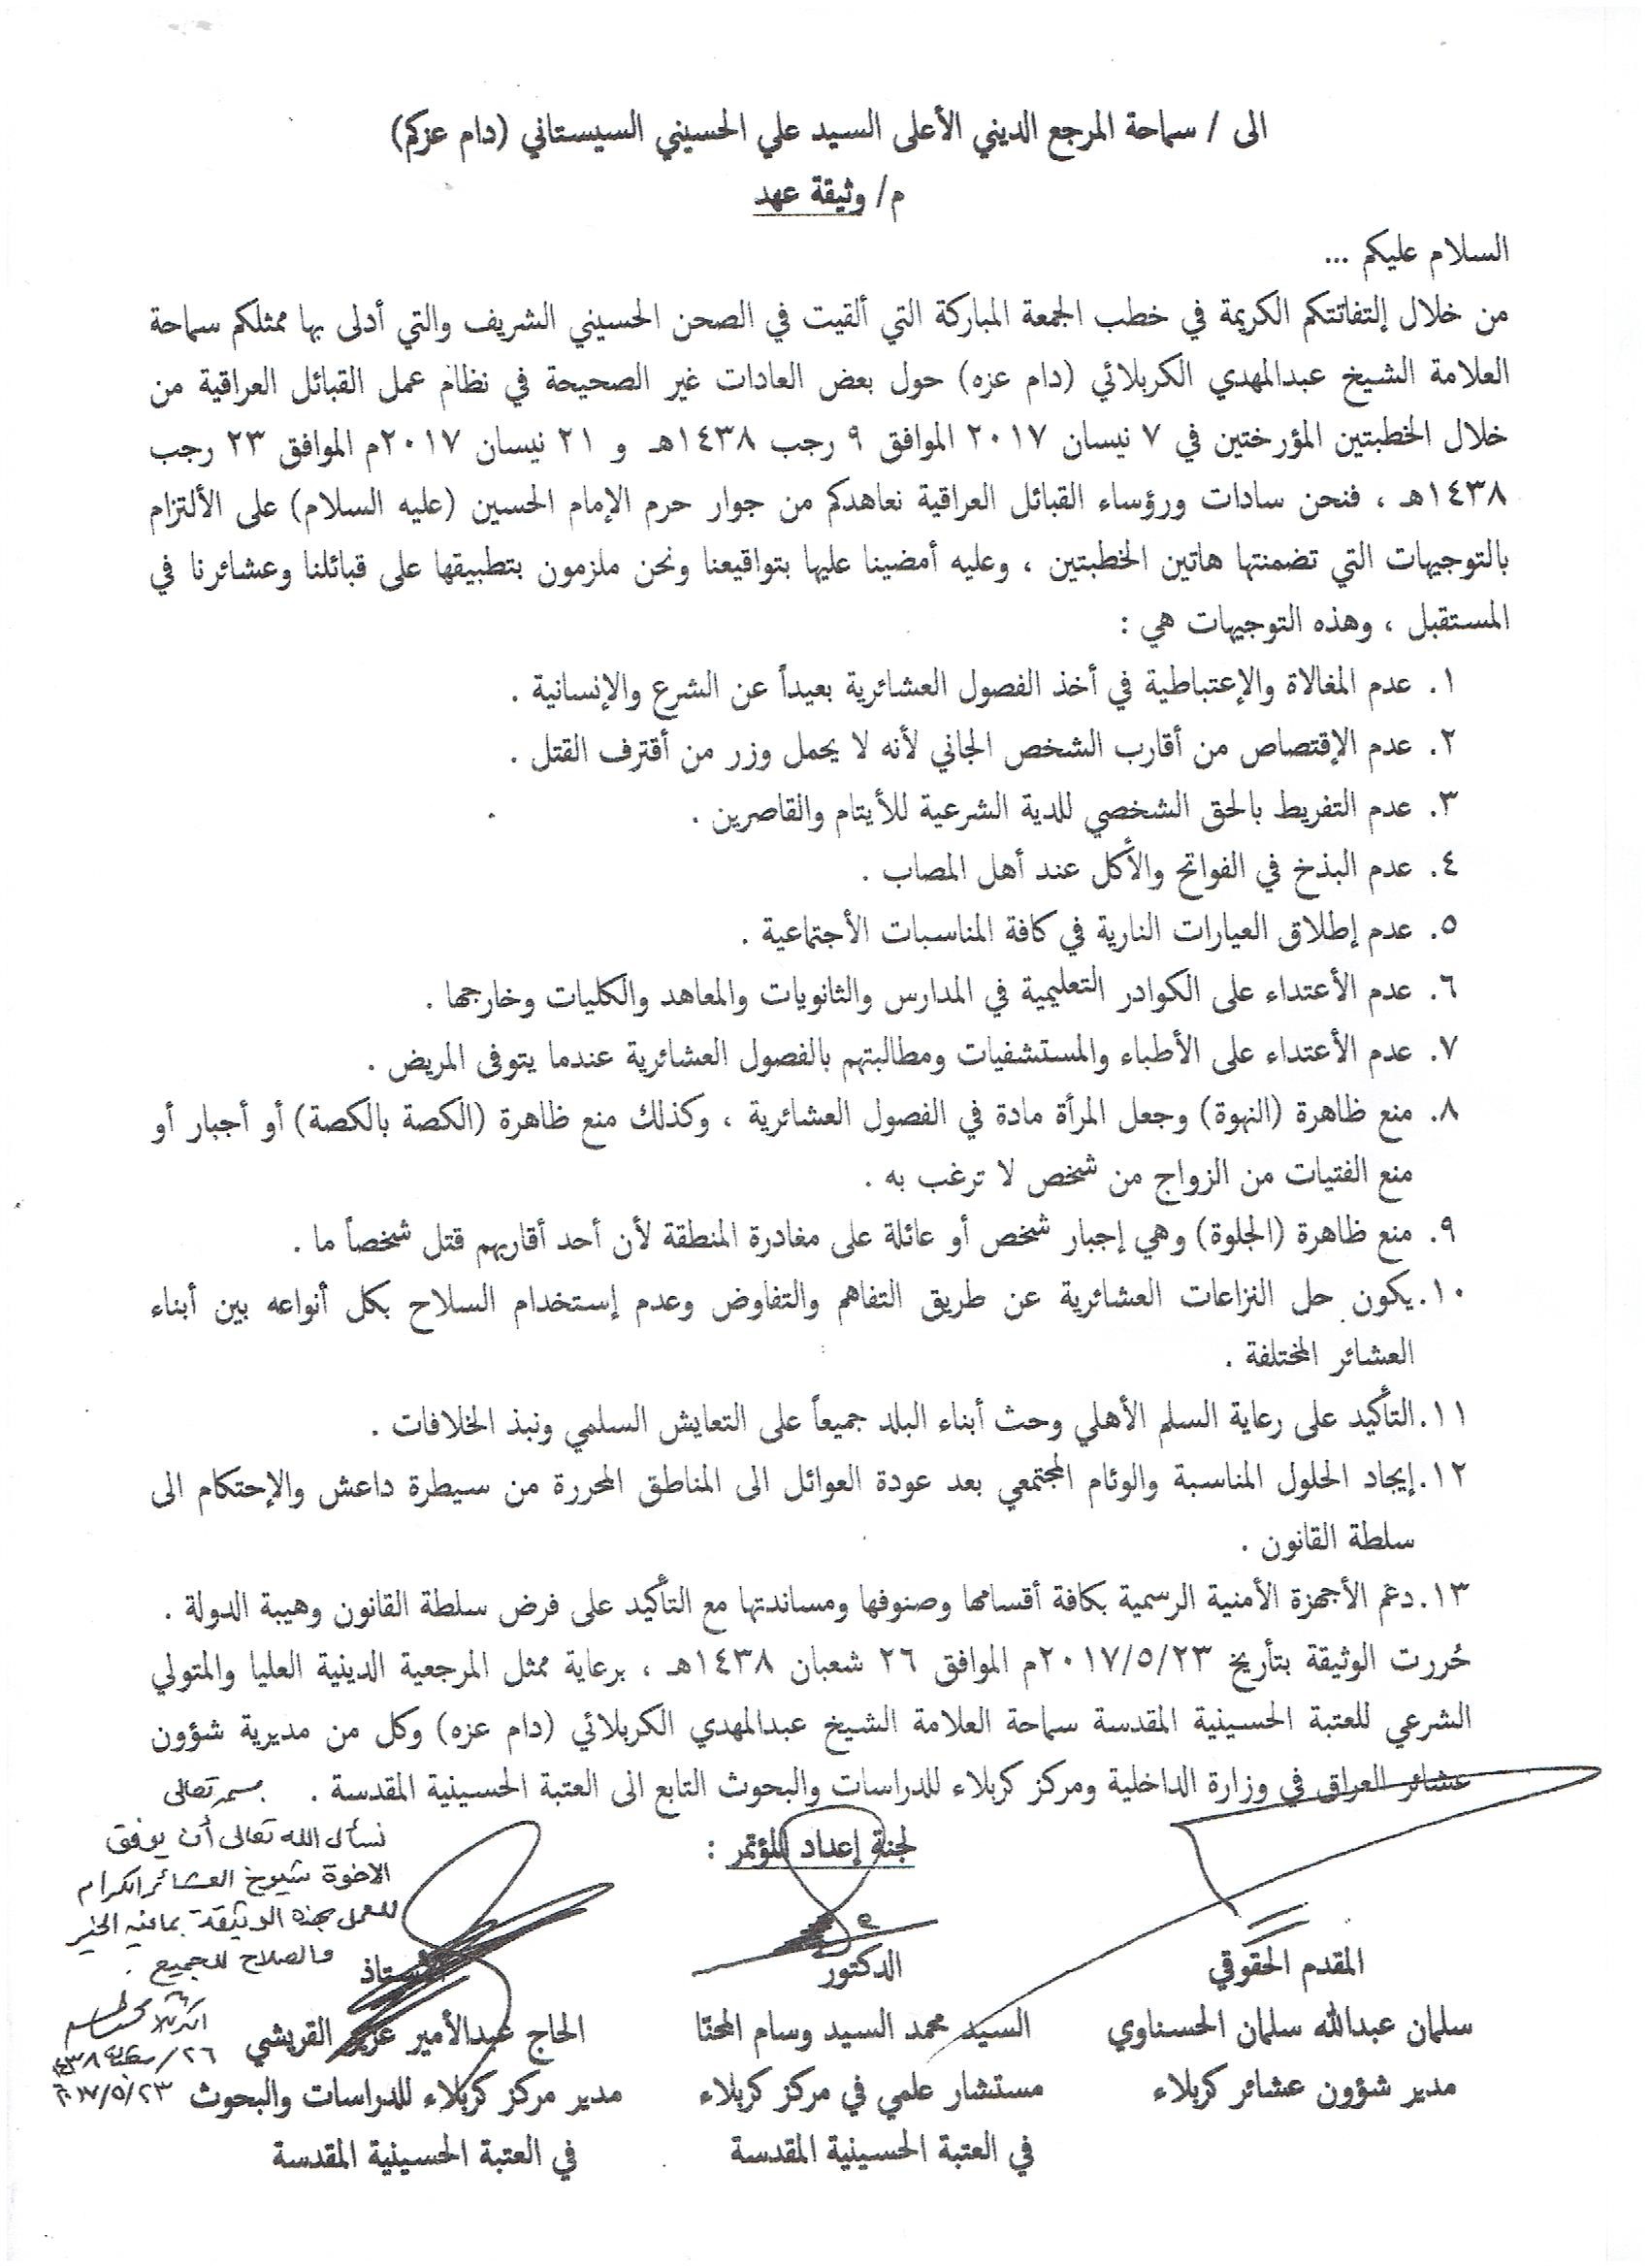 الى / سماحة المرجع الديني الأعلى السيد علي الحسيني السيستاني (دام عزكم)
م/ وثيقة عهد
السلام عليكم ...
من خلال إلتفاتتكم الكريمة في خطب الجمعة المباركة التي ألقيت في الصحن الحسيني الشريف والتي أدلى بها ممثلكم سماحة
العلامة الشيخ عبدالمهدي الكربلائي (دام عزه) حول بعض العادات غير الصحيحة في نظام عمل القبائل العراقية من
خلال الخطبتين المؤرختين في ٧ نيسان ٢٠١٧ الموافق ٩ رجب ١٤٣٨هـ و ٢١ نيسان ٢٠١٧م الموافق ٢٣ رجب
١٤٣٨هـ ، فنحن سادات ورؤساء القبائل العراقية نعاهدكم من جوار حرم الإمام الحسين (عليه السلام) على الألتزام
بالتوجيهات التي تضمنتها هاتين الخطبتين ، وعليه أمضينا عليها بتواقيعنا ونحن ملزمون بتطبيقها على قبائلنا وعشائرنا في
المستقبل ، وهذه التوجيهات هي :
١. عدم المغالاة والإعتباطية في أخذ الفصول العشائرية بعيداً عن الشرع والإنسانية .
٢. عدم الإقتصاص من أقارب الشخص الجاني لأنه لا يحمل وزر من أقترف القتل .
٣. عدم التفريط بالحق الشخصي للدية الشرعية للأيتام والقاصرين .
٤. عدم البذخ في الفواتح والأكل عند أهل المصاب .
٥. عدم إطلاق العيارات النارية في كافة المناسبات الأجتماعية .
٦. عدم الأعتداء على الكوادر التعليمية في المدارس والثانويات والمعاهد والكليات وخارجها .
٧. عدم الأعتداء على الأطباء والمستشفيات ومطالبتهم بالفصول العشائرية عندما يتوفى المريض .
٨. منع ظاهرة (النهوة) وجعل المرأة مادة في الفصول العشائرية ، وكذلك منع ظاهرة (الكصة بالكصة) أو أجبار أو
منع الفتيات من الزواج من شخص لا ترغب به .
٩. منع ظاهرة (الجلوة) وهي إجبار شخص أو عائلة على مغادرة المنطقة لأن أحد أقاربهم قتل شخصاً ما .
١٠. يكون حل النزاعات العشائرية عن طريق التفاهم والتفاوض وعدم إستخدام السلاح بكل أنواعه بين أبناء
العشائر المختلفة .
١١. التأكيد على رعاية السلم الأهلي وحث أبناء البلد جميعاً على التعايش السلمي ونبذ الخلافات .
١٢. إيجاد الحلول المناسبة والوئام المجتمعي بعد عودة العوائل الى المناطق المحررة من سيطرة داعش والإحتكام الى
سلطة القانون .
١٣. دعم الأجهزة الأمنية الرسمية بكافة أقسامها وصنوفها ومساندتها مع التأكيد على فرض سلطة القانون وهيبة الدولة .
حُررت الوثيقة بتأريخ ٢٠١٧/٥/٢٣م الموافق ٢٦ شعبان ١٤٣٨هـ ، برعاية ممثل المرجعية الدينية العليا والمتولي
الشرعي للعتبة الحسينية المقدسة سماحة العلامة الشيخ عبدالمهدي الكربلائي (دام عزه) وكل من مديرية شؤون
عشائر العراق في وزارة الداخلية ومركز كربلاء للدراسات والبحوث التابع الى العتبة الحسينية المقدسة .
بسمه تعالى
نسأل الله تعالى أن يوفق
الاخوة شيوخ العشائر الكرام
للعمل بهذه الوثيقة بما فيه الخير
والصلاح للجميع .
٢٦/شعبان/١٤٣٨
٢٠١٧/٥/٢٣
لجنة إعداد المؤتمر :
المقدم الحقوقي
سلمان عبدالله سلمان الحسناوي
مدير شؤون عشائر كربلاء
الدكتور
السيد محمد السيد وسام المحنّا
مستشار علمي في مركز كربلاء
في العتبة الحسينية المقدسة
الأستاذ
الحاج عبدالأمير عزيز القريشي
مدير مركز كربلاء للدراسات والبحوث
في العتبة الحسينية المقدسة